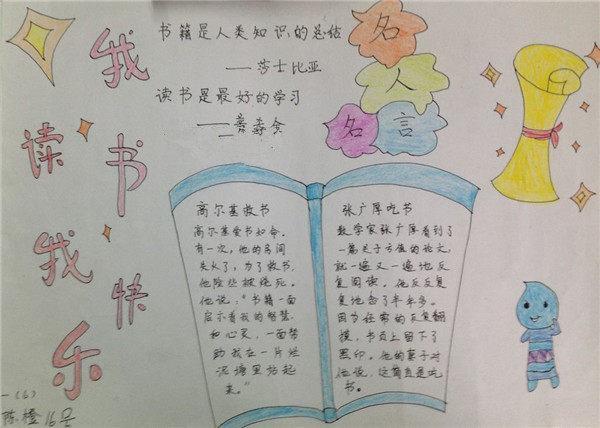 我读书我快乐
书籍是人类知识的总结
——莎士比亚
读书是最好的学习
名人名言
高尔基救书
高尔基爱书如命。
有一次，他的房间
失火了，为了救书，
他险些被烧死。
他说：“书籍一面
启示着我的智慧
和心灵，一面帮
助我在一片烂
泥塘里站起
来。”
张广厚吃书
数学家张广厚看到了
一篇关于亏值的论文，
就一遍又一遍地反
复阅读。他反反复
复地念了半年多。
因为经常的反复翻
摸，书页上留下了
黑印。他的妻子对
他说，这简直是吃
书。
一（6）
陈橙16号